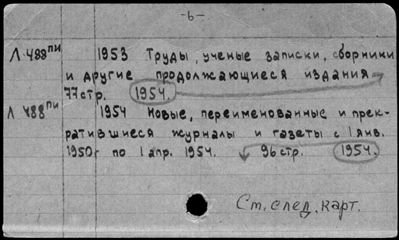 -6-
Л 488пи 1953 Труды, ученые записки, сборники
и другие продолжающиеся издания
77 стр. 1954.
Л 488пи 1954 Новые, переименованные и прек-
ратившиеся журналы и газеты с 1 янв.
1950г по 1 апр. 1954. 96 стр. 1954.
Ст. след. карт.